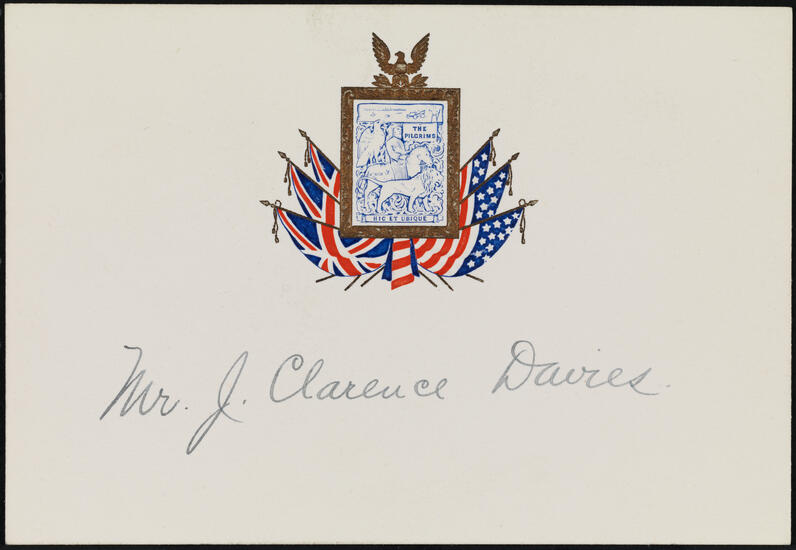 THE
PILGRIMS
HIC ET UBIQUE
Mr. J. Clarence Davies.